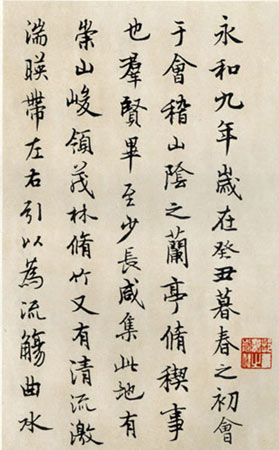 永和九年歲在癸丑暮春之初會
于會稽山陰之蘭亭脩稧事
也羣賢畢至少長咸集此地有
崇山峻領茂林脩竹又有清流激
湍暎帶左右引以為流觴曲水